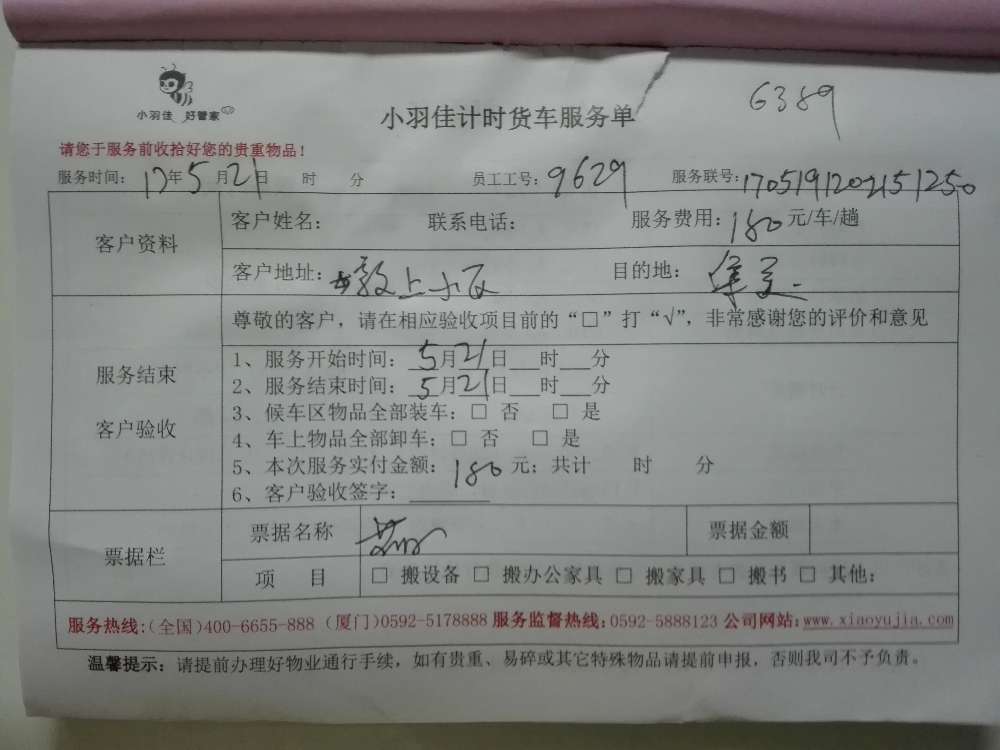 小羽佳 好管家
小羽佳计时货车服务单
6389
请您于服务前收拾好您的贵重物品！
服务时间： 17年5月21日 时 分 员工工号：9629 服务联号：1705191202151250
客户资料
客户姓名： 联系电话： 服务费用：180元/车/趟
客户地址： 上 目的地：
尊敬的客户，请在相应验收项目前的“□”打“√”，非常感谢您的评价和意见
服务结束
客户验收
1、服务开始时间：5月21日__时__分
2、服务结束时间：5月21日__时__分
3、候车区物品全部装车：□ 否 □ 是
4、车上物品全部卸车：□ 否 □ 是
5、本次服务实付金额：180元；共计 时 分
6、客户验收签字：
票据栏
票据名称 票据金额
项 目 □ 搬设备 □ 搬办公家具 □ 搬家具 □ 搬书 □ 其他：
服务热线:(全国)400-6655-888 (厦门)0592-5178888 服务监督热线:0592-5888123 公司网站:www.xiaoyujia.com
温馨提示：请提前办理好物业通行手续，如有贵重、易碎或其它特殊物品请提前申报，否则我司不予负责。